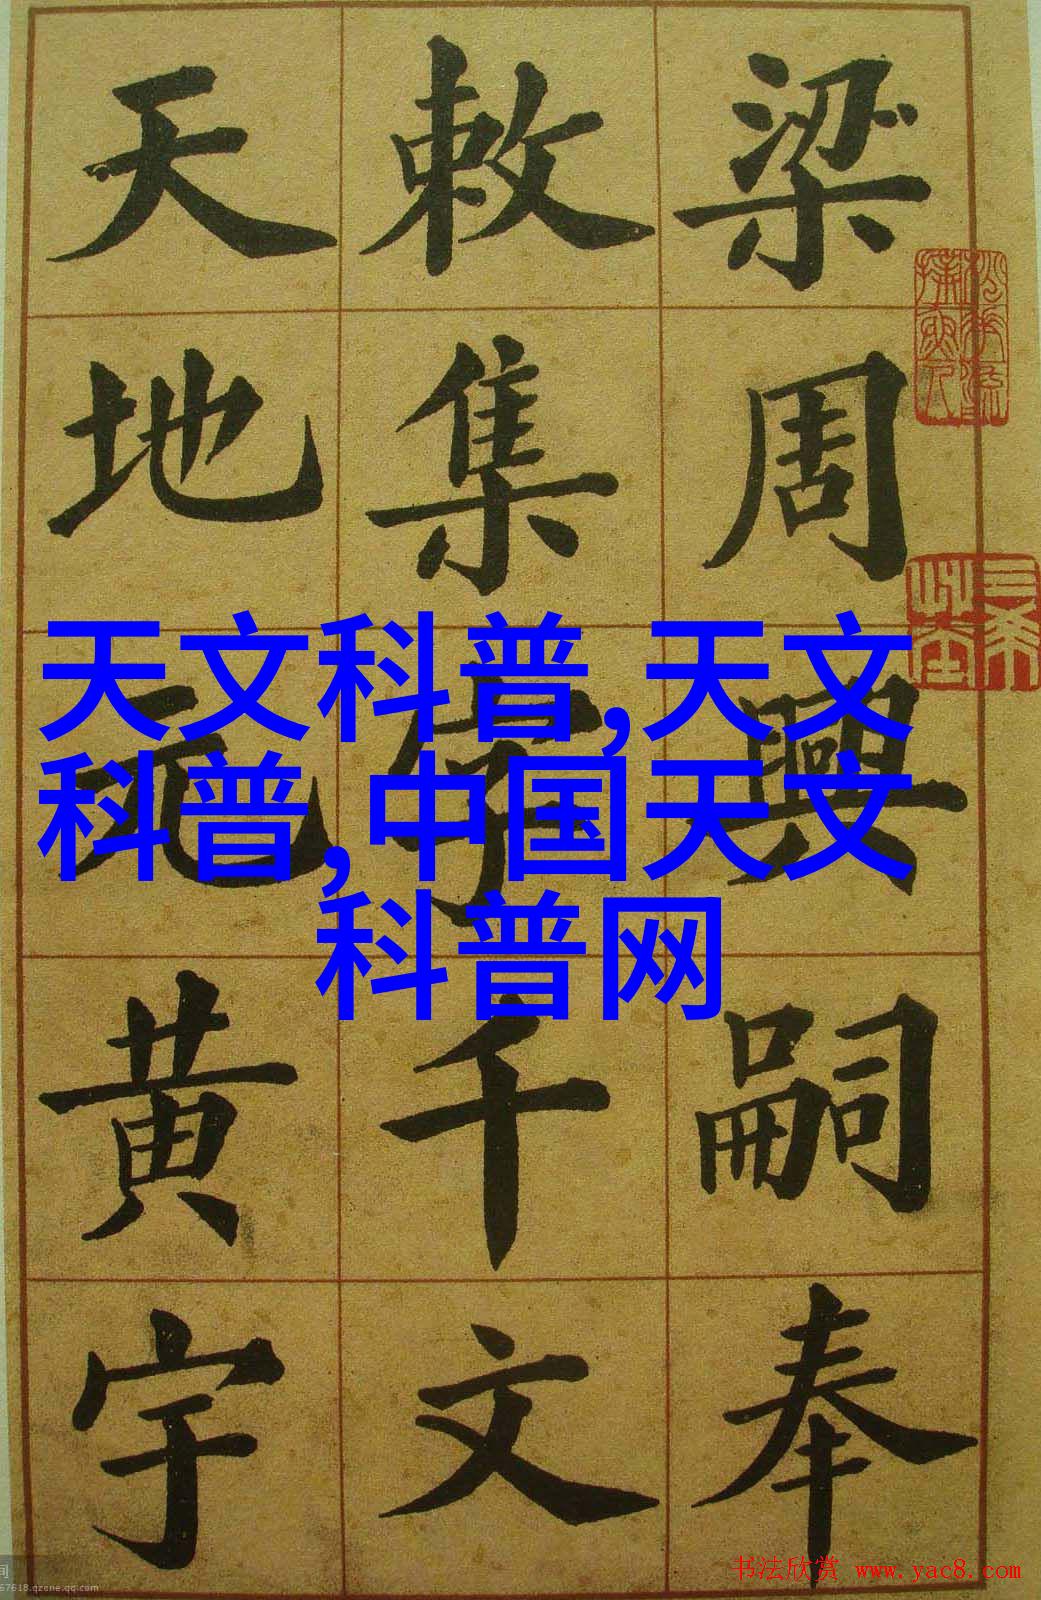 梁周興嗣奉
敕集字千文
天地元黄宇
天文科普,天文
科普,中国天文
科普网
书法欣赏 www.yac8.com
67618.qzone.qq.com